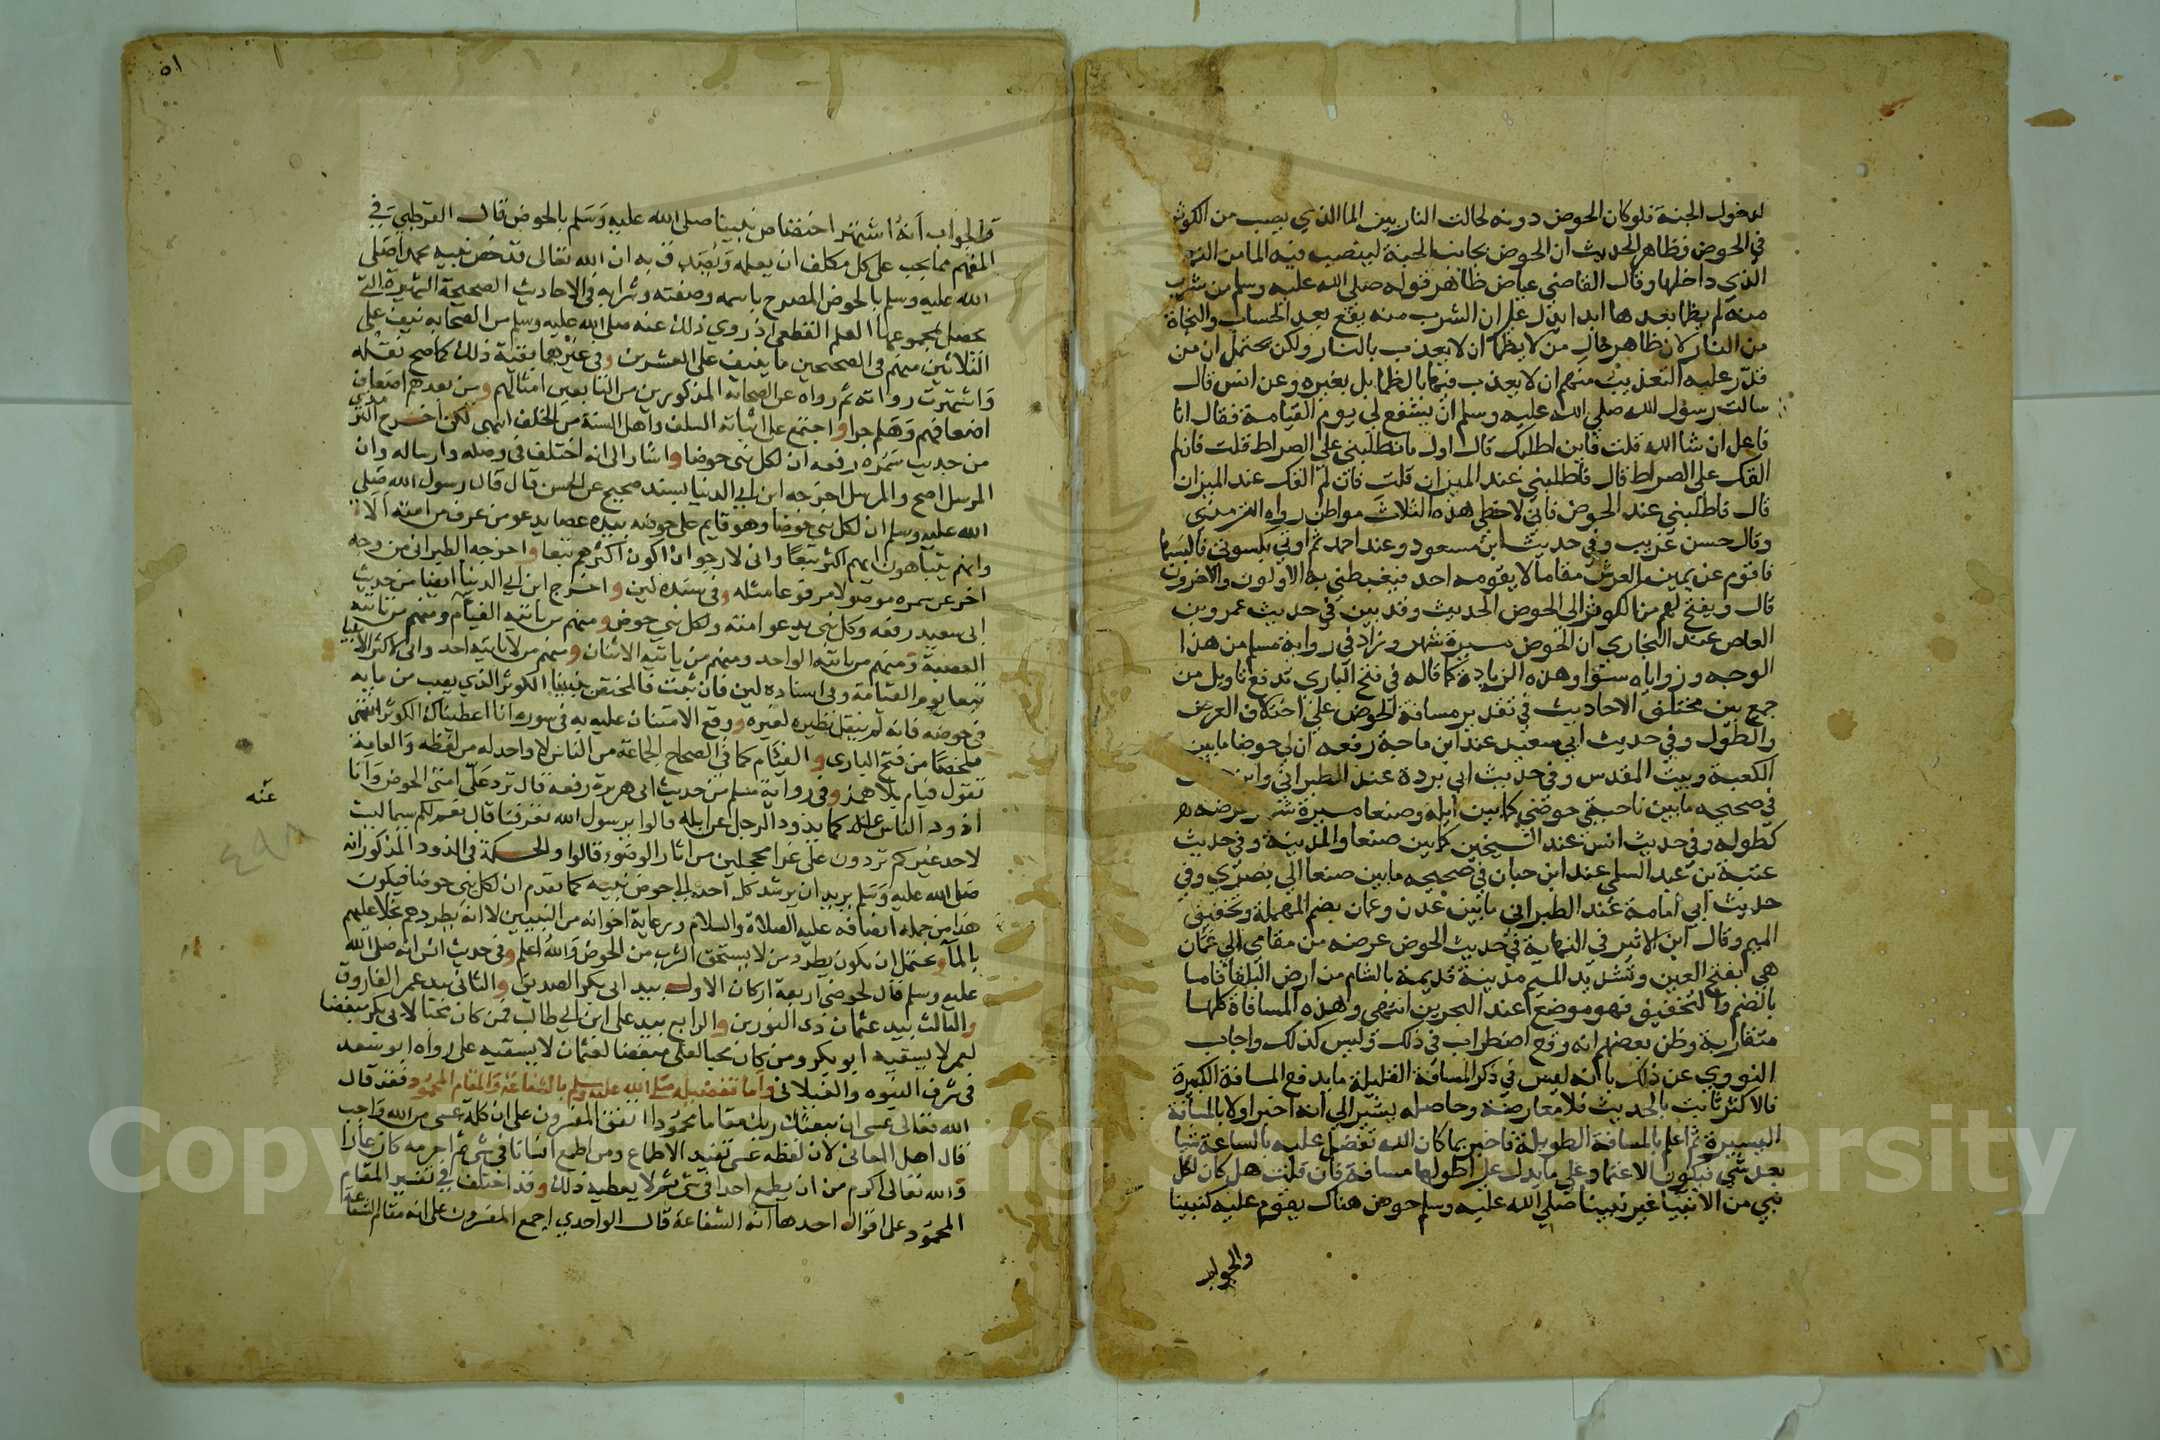 لدخول الجنة فلو كان الحوض دونه لحالت النار بين الما الذي يصب من الكوثر
في الحوض فظاهر الحديث ان الحوض بجانب الجنة لينصب فيه الما من النهر
الذي داخلها وقال القاضي عياض ظاهر قوله صلى الله عليه وسلم من شرب
منه لم يظما بعدها ابدا يدل على ان الشرب منه يقع بعد الحساب والنجاة
من النار لان ظاهر حال من لا يظما ان لا يعذب بالنار ولكن يحتمل ان من
قدر عليه التعذيب منهم ان لا يعذب فيها بالظما بل بغيره وعن انس قال
سالت رسول الله صلى الله عليه وسلم ان يشفع لي يوم القيامة فقال انا
فاعل ان شا الله قلت فاين اطلبك قال اول ما تطلبني على الصراط قلت فان لم
القك على الصراط قال فاطلبني عند الميزان قلت فان لم القك عند الميزان
قال فاطلبني عند الحوض فاني لا اخطي هذه الثلاث مواطن رواه الترمذي
وقال حسن غريب وفي حديث ابن مسعود وعند احمد ثم اوتي بكسوتي فالبسها
فاقوم عن يمين العرش مقاما لا يقومه احد فيغبطني به الاولون والاخرون
قال ويفتح لهم من الكوثر الى الحوض الحديث وقد بين في حديث عمرو بن
العاص عند البخاري ان الحوض مسيرة شهر وزاد في رواية مسلم من هذا
الوجه وزواياه سوا وهذه الزيادة كما قاله في فتح الباري تدفع تاويل من
جمع بين مختلف الاحاديث في تقدير مسافة الحوض على اختلاف العرض
والطول وفي حديث ابي سعيد عند ابن ماجة رفعه ان لي حوضا ما بين
الكعبة وبيت المقدس وفي حديث ابي بردة عند الطبراني وابن
في صحيحه ما بين ناحيتي حوضي كما بين ايلة وصنعا مسيرة شهر عرضه
كطوله وفي حديث انس عند الشيخين كما بين صنعا والمدينة وفي حديث
عتبة بن عبد السلمي عند ابن حبان في صحيحه ما بين صنعا الى بصري وفي
حديث ابي امامة عند الطبراني ما بين عدن وعمان بضم المهملة وتخفيف
الميم وقال ابن الاثير في النهاية في حديث الحوض عرضه من مقامي الى عمان
هي بفتح العين وتشديد الميم مدينة قديمة بالشام من ارض البلقا فاما
بالضم والتخفيف فهو موضع عند البحرين انتهى وهذه المسافاة كلها
متقاربة وظن بعضهم انه وقع اضطراب في ذلك وليس كذلك واجاب
النووي عن ذلك بانه ليس في ذكر المسافة القليلة ما يدفع المسافة الكثيرة
فالاكثر ثابت بالحديث فلا معارضة وحاصله يشير الى انه اخبر اولا بالمسافة
اليسيرة ثم اعلم بالمسافة الطويلة فاخبر بها كان الله تفضل عليه بالساعة شيا
بعد شي فيكون الاعتماد على ما يدل على اطولها مسافة فان قلت هل كان لكل
نبي من الانبيا غير نبينا صلى الله عليه وسلم حوض هناك يقوم عليه كنبينا
والجواب
٥١
والجواب انه اشتهر اختصاص نبينا صلى الله عليه وسلم بالحوض قال القرطبي في
المفهم مما يجب على كل مكلف ان يعلمه ويصدق به ان الله تعالى قد خص نبيه محمدا صلى
الله عليه وسلم بالحوض المصرح باسمه وصفته وشرابه في الاحاديث الصحيحة الشهيرة التي
يحصل بمجموعها العلم القطعي اذ روي ذلك عنه صلى الله عليه وسلم من الصحابه نيف على
الثلاثين منهم في الصحيحين ما ينيف على العشرين وفي غيرهما بقية ذلك كما صح نقله
واشتهرت رواته ثم رواه عن الصحابة المذكورين من التابعين امثالهم ومن بعدهم اضعاف
اضعافهم وهلم جرا واجتمع على اثباته السلف واهل السنة من الخلف انتهى لكن اخرج الترمذي
من حديث سمرة رفعه ان لكل نبي حوضا واشار الى انه اختلف في وصله وارساله وان
المرسل اصح والمرسل اخرجه ابن ابي الدنيا بسند صحيح عن الحسن قال قال رسول الله صلى
الله عليه وسلم ان لكل نبي حوضا وهو قايم على حوضه بيده عصا يدعو من عرف من امته الا
وانهم يتباهون ايهم اكثر تبعا واني لارجو ان اكون اكثرهم تبعا واخرجه الطبراني من وجه
اخر عن سمره موصولا مرفوعا مثله وفي سنده لين واخرج ابن ابي الدنيا ايضا من حديث
ابي سعيد رفعه وكل نبي يدعو امته ولكل نبي حوض ومنهم من ياتيه الفيام ومنهم من ياتيه
العصبة ومنهم من ياتيه الواحد ومنهم من ياتيه الاثنان ومنهم من لا ياتيه احد واني لاكثر الانبيا
تبعا يوم القيامة وفي اسناده لين فان ثبت فالمختص نبينا الكوثر الذي يصب من مايه
في حوضه فانه لم ينقل نظيره لغيره ووقع الامتنان عليه به في سورة انا اعطيناك الكوثر انتهى
ملخصا من فتح الباري والفيام كما في الصحاح الجماعة من الناس لا واحد له من لفظه والعامة
تقول فيام بلا همز وفي رواية مسلم من حديث ابي هريرة رفعه قال ترد علي امتي الحوض وانا
اذود الناس عنه كما يذود الرجل عن ابله قالوا يرسول الله تعرفنا قال نعم لكم سيما ليست
عنه
لاحد غيركم تردون علي غرا محجلين من اثار الوضوء قالوا والحكمة في الذود المذكور انه
٤٩٨
صلى الله عليه وسلم يريد ان يرشد كل احد الى حوض نبيه كما تقدم ان لكل نبي حوضا فيكون
هذا من جملة انصافه عليه الصلاة والسلام ورعاية اخوانه من النبيين لا انه يطردهم بخلا عليهم
بالما ويحتمل ان يكون يطرد من لا يستحق الشرب من الحوض والله اعلم وفي حديث انس انه صلى الله
عليه وسلم قال لحوضي اربعة اركان الاول بيد ابي بكر الصديق والثاني بيد عمر الفاروق
والثالث بيد عثمان ذي النورين والرابع بيد علي ابن ابي طالب فمن كان محبا لابي بكر مبغضا
لعمر لا يسقيه ابو بكر ومن كان محبا لعلي مبغضا لعثمان لا يسقيه علي رواه ابو سعد
في شرف النبوه والغيلاني واما تفضيله صلى الله عليه وسلم بالشفاعة والمقام المحمود فقد قال
الله تعالى عسى ان يبعثك ربك مقاما محمودا اتفق المفسرون على ان كلمة عسى من الله واجب
قال اهل المعاني لان لفظه عسى تفيد الاطماع ومن اطمع انسانا في شي ثم احرمه كان عارا
والله تعالى اكرم من ان يطمع احدا في شي ثم لا يعطيه ذلك وقد اختلف في تفسير المقام
المحمود على اقوال احدها انه الشفاعة قال الواحدي اجمع المفسرون على انه مقام الشفاعة